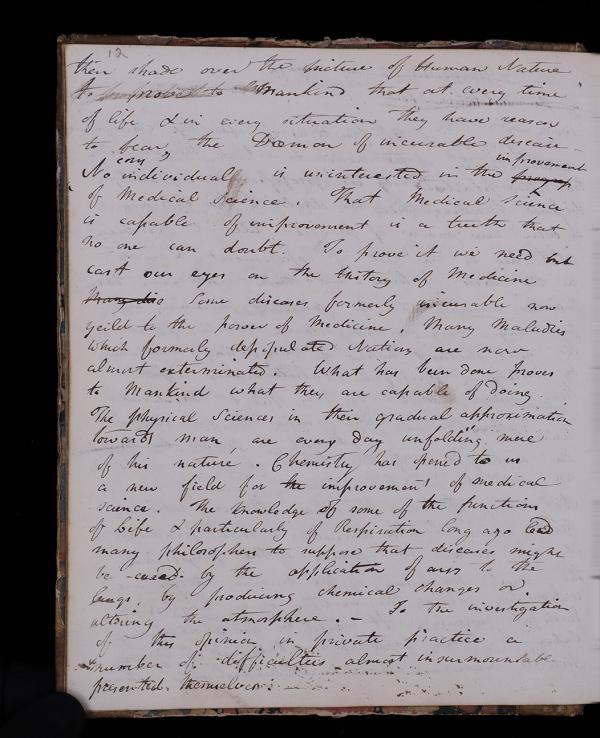 12
then shade over the picture of Human Nature
to Mankind that at every time
of life & in every situation they have reason
to fear the Dæmon of incurable disease –
improvement
No individual is uninterested in the
of Medical Science. That Medical Science
is capable of improvement is a truth that
no one can doubt. To prove it we need but
cast our eyes on the History of Medicine
Some diseases formerly incurable now
yeild to the power of Medicine. Many Maladies
which formerly depopulated Nations are now
almost exterminated. What has been done proves
to Mankind what they are capable of doing.
The physical Sciences in their gradual approximation
towards man are every day unfolding more
of his nature. Chemistry has opened to us
a new field for the improvement of medical
science. The knowledge of some of the functions
of Life & particularly of Respiration long ago led
many philosophers to suppose that diseases might
be cured by the application of airs to the
lungs, by producing chemical changes or
altering the atmosphere. – To the investigation
of this opinion in private practice a
number of difficulties almost insurmountable
presented themselves.